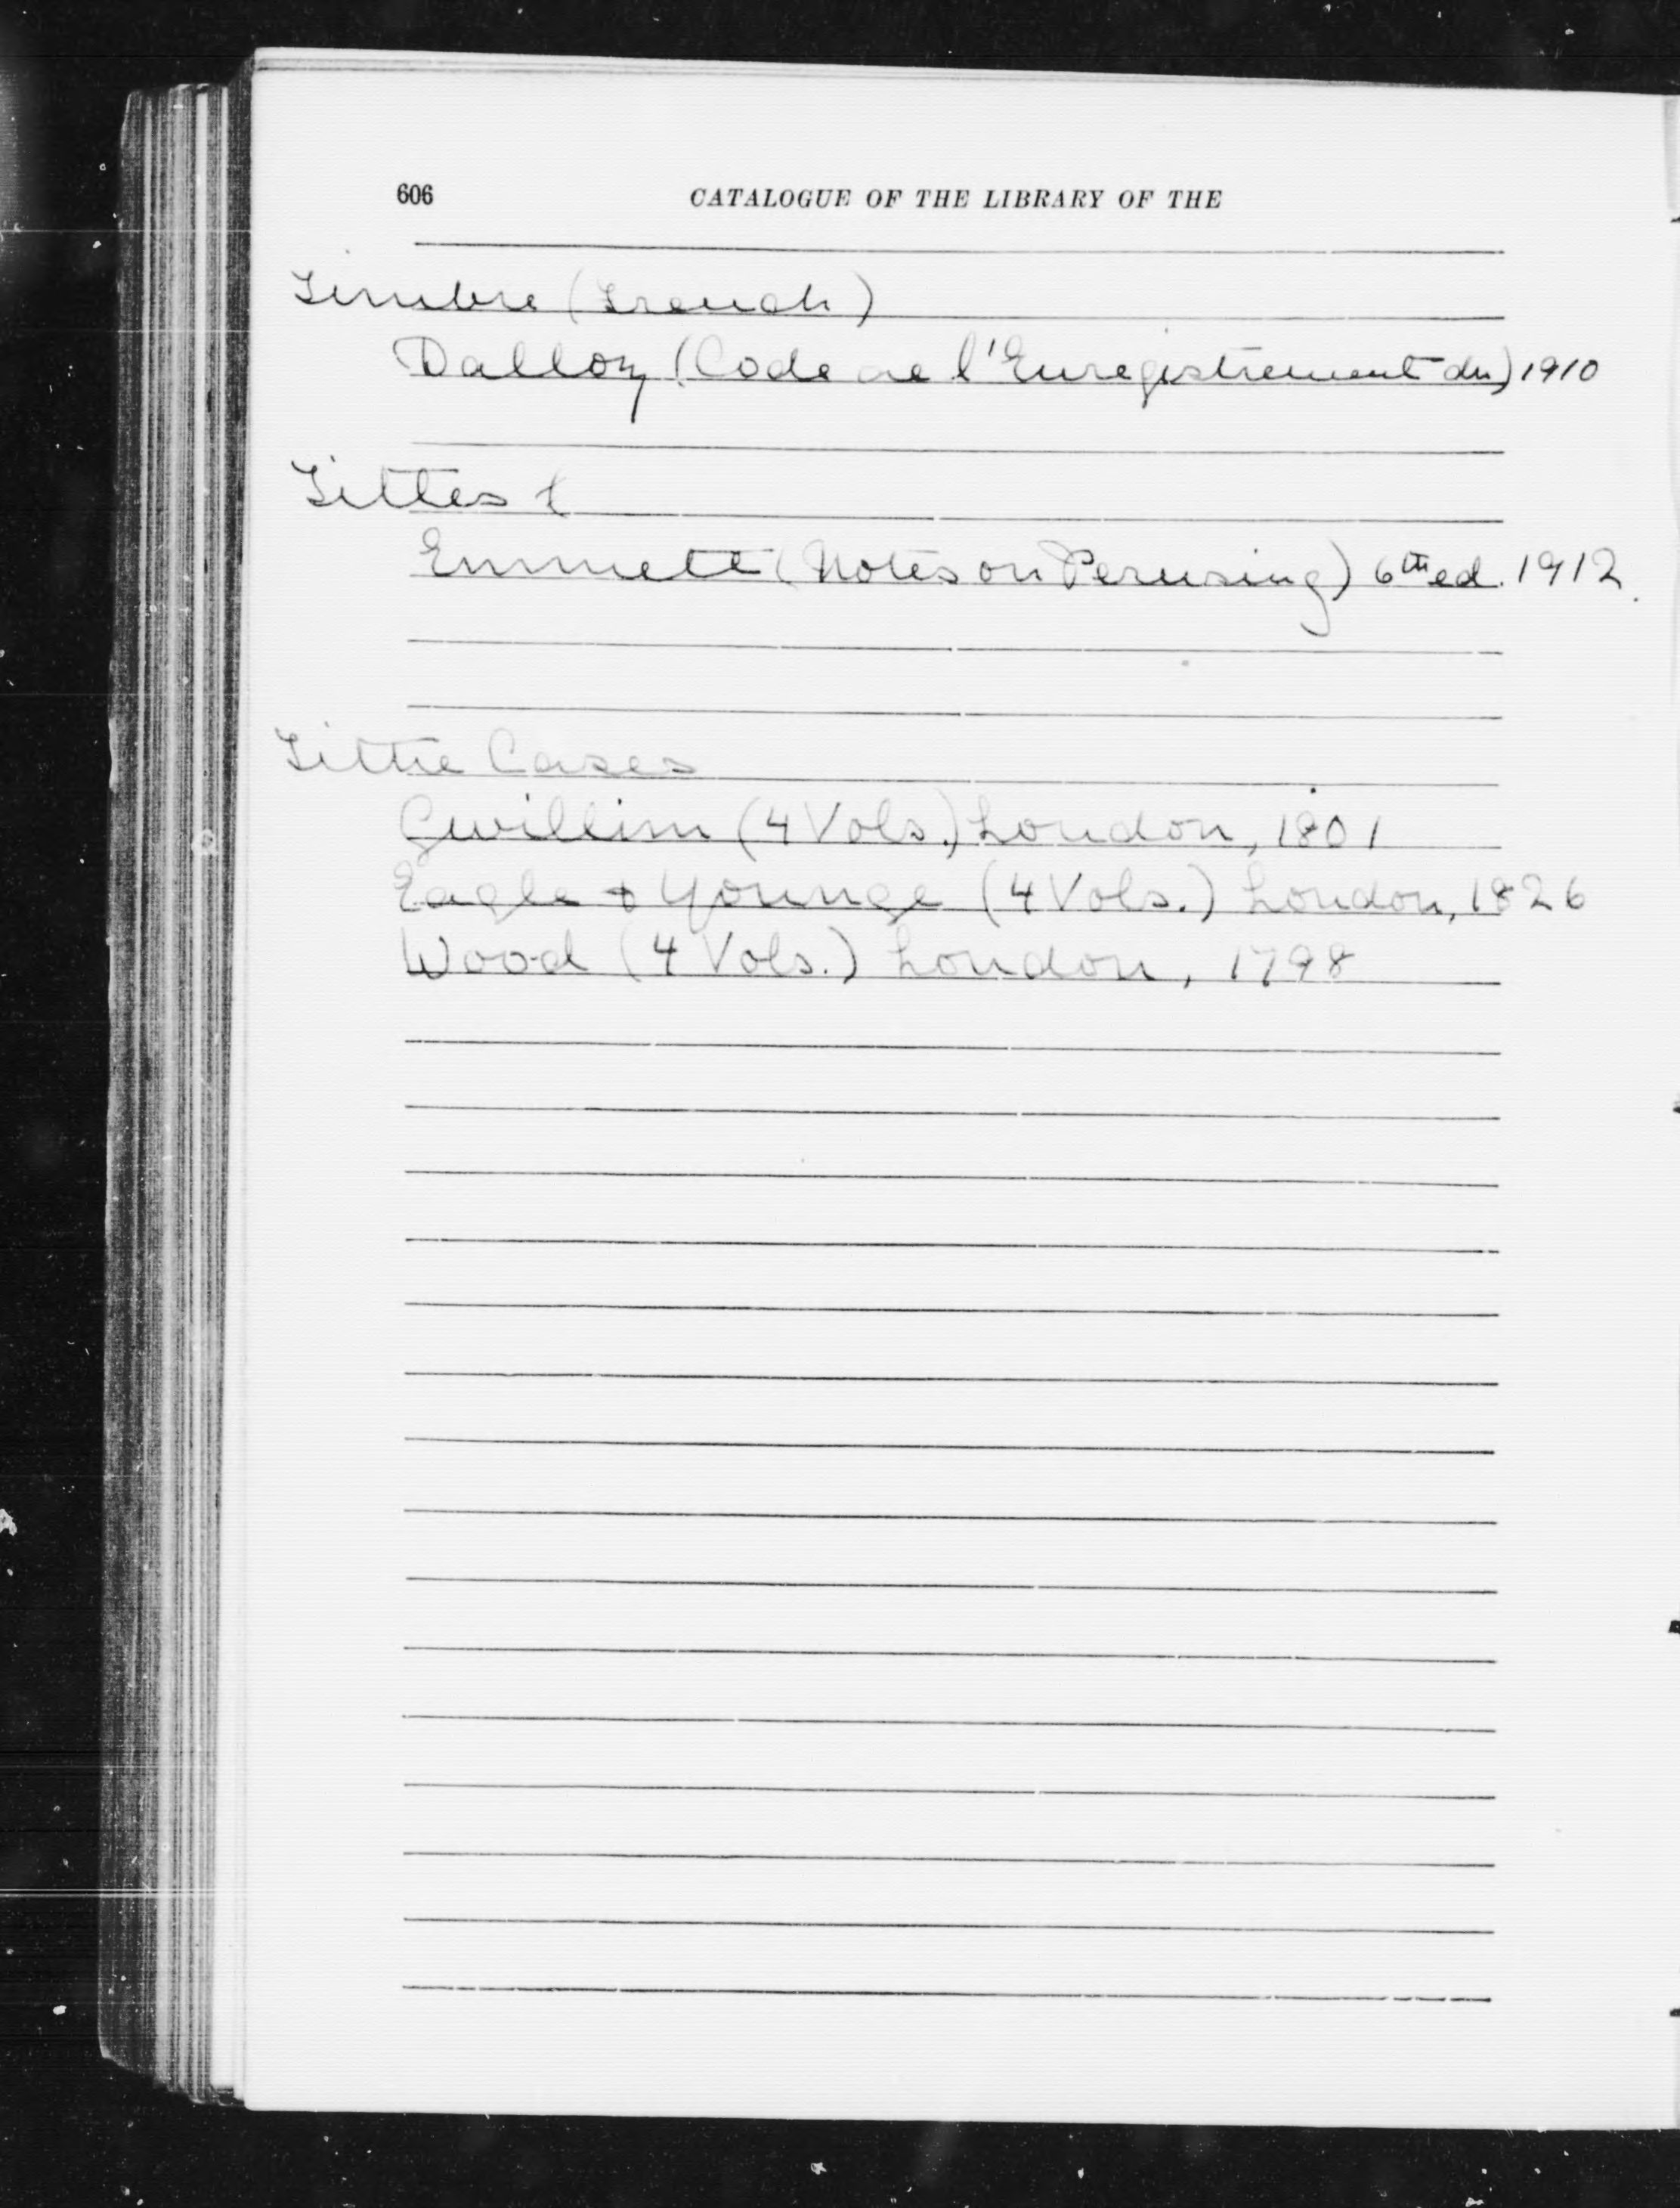 606 CATALOGUE OF THE LIBRARY OF THE
Timbre (French)
Dalloz (Code de l'Enregistrement du) 1910
Titles
Emmett (Notes on Perusing) 6th ed. 1912.
Tithe Cases
Gwillim (4 Vols.) London, 1801
Eagle & Younge (4 Vols.) London, 1826
Wood (4 Vols.) London, 1798